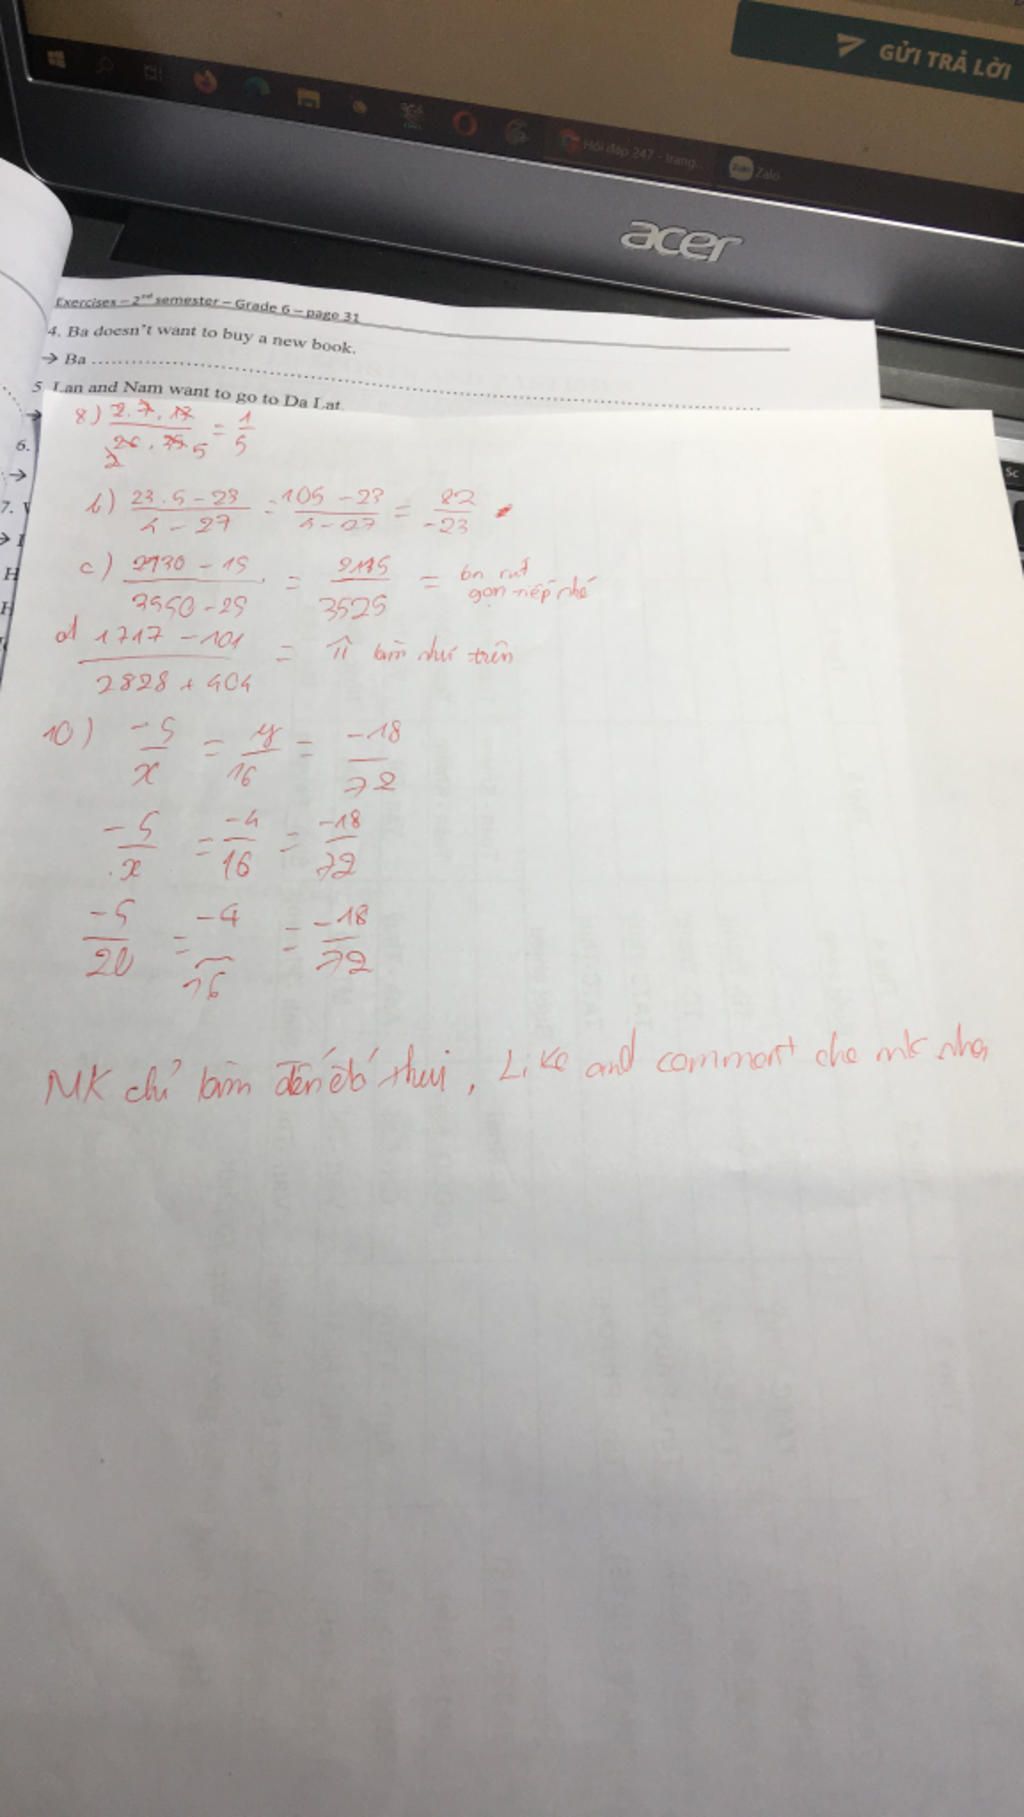 GỬI TRẢ LỜI
Hỏi đáp 247 - trang...
Zalo
Zalo
acer
Exercises – 2nd semester – Grade 6 – page 31
4. Ba doesn't want to buy a new book.
→ Ba ..........
5. Lan and Nam want to go to Da Lat
→
6.
→
7.
→
H
Sc
8) 2.7.13 / 26.35 2 5 = 1/5
b) 23.5-23 / 4-27 = 105-23 / 4-27 = 82/-23
c) 2130-15 / 3550-25 = 2115/3525 = bn rút
gọn tiếp nhé
d) 1717-101 / 2828+404 = làm như trên
10) -5/x = y/16 = -18/72
-5/x = -4/16 = -18/72
-5/20 = -4/16 = -18/72
MK chỉ làm đến đó thui, Like and comment cho mk nha